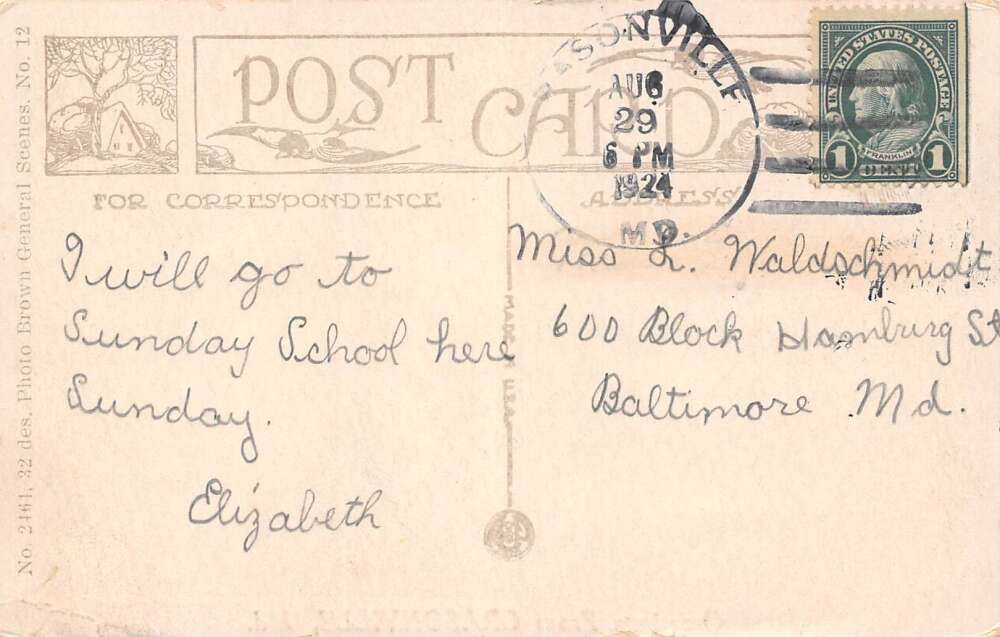 No. 2461, 32 des. Photo Brown General Scenes. No. 12
POST CARD
FOR CORRESPONDENCE
ADDRESS
AUG
29
6 PM
1924
MD.
UNITED STATES POSTAGE
FRANKLIN
1 CENT 1
I will go to
Sunday School here
Sunday.
Elizabeth
MADE IN U.S.A.
Miss L. Waldschmidt
600 Block Hamburg St
Baltimore Md.